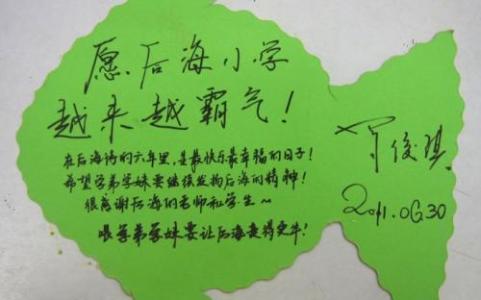 愿后海小学
越来越霸气！
在后海待的六年里，是最快乐最幸福的日子！
希望学弟学妹要继续发扬后海的精神！
很感谢后海的老师和学生~
学弟学妹要让后海变得更牛！
俊琪
2011.06.30